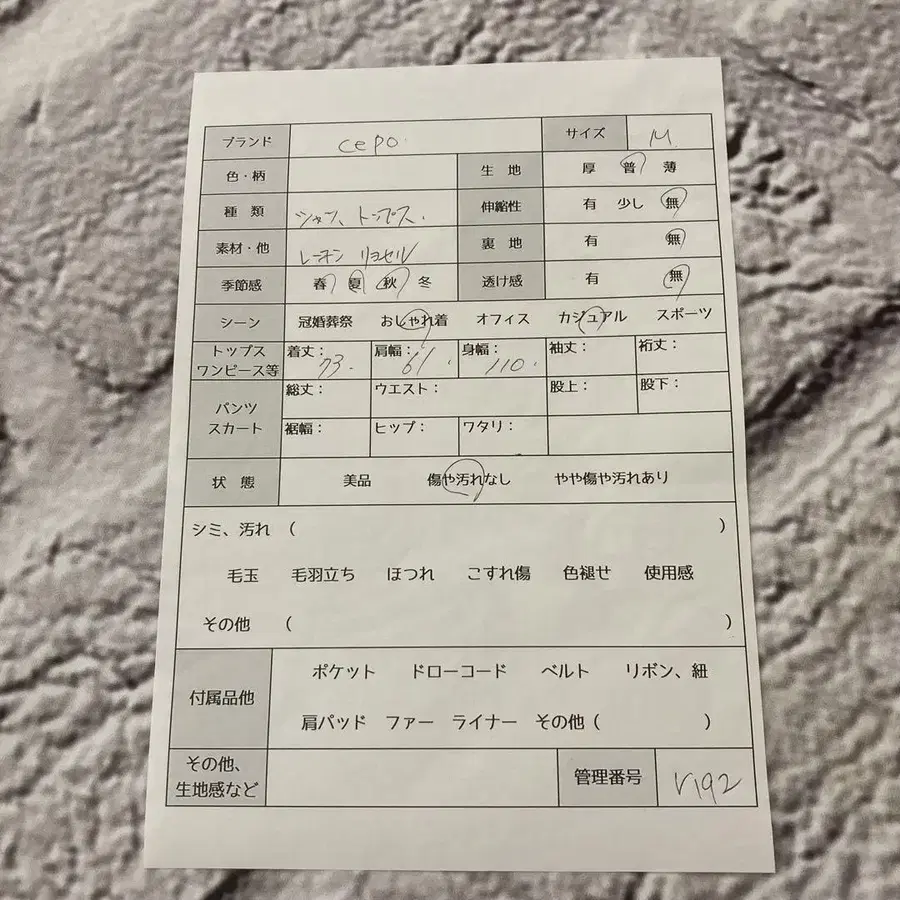 ブランド cepo サイズ M
色・柄 生地 厚 普 薄
種類 シャツ、トップス. 伸縮性 有 少し 無
素材・他 レーヨン リヨセル 裏地 有 無
季節感 春 夏 秋 冬 透け感 有 無
シーン 冠婚葬祭 おしゃれ着 オフィス カジュアル スポーツ
トップス ワンピース等 着丈： 73. 肩幅： 61. 身幅： 110. 袖丈： 裄丈：
パンツ スカート 総丈： ウエスト： 股上： 股下：
裾幅： ヒップ： ワタリ：
状態 美品 傷や汚れなし やや傷や汚れあり
シミ、汚れ （ ）
毛玉 毛羽立ち ほつれ こすれ傷 色褪せ 使用感
その他 （ ）
付属品他 ポケット ドローコード ベルト リボン、紐
肩パッド ファー ライナー その他（ ）
その他、生地感など 管理番号 V192